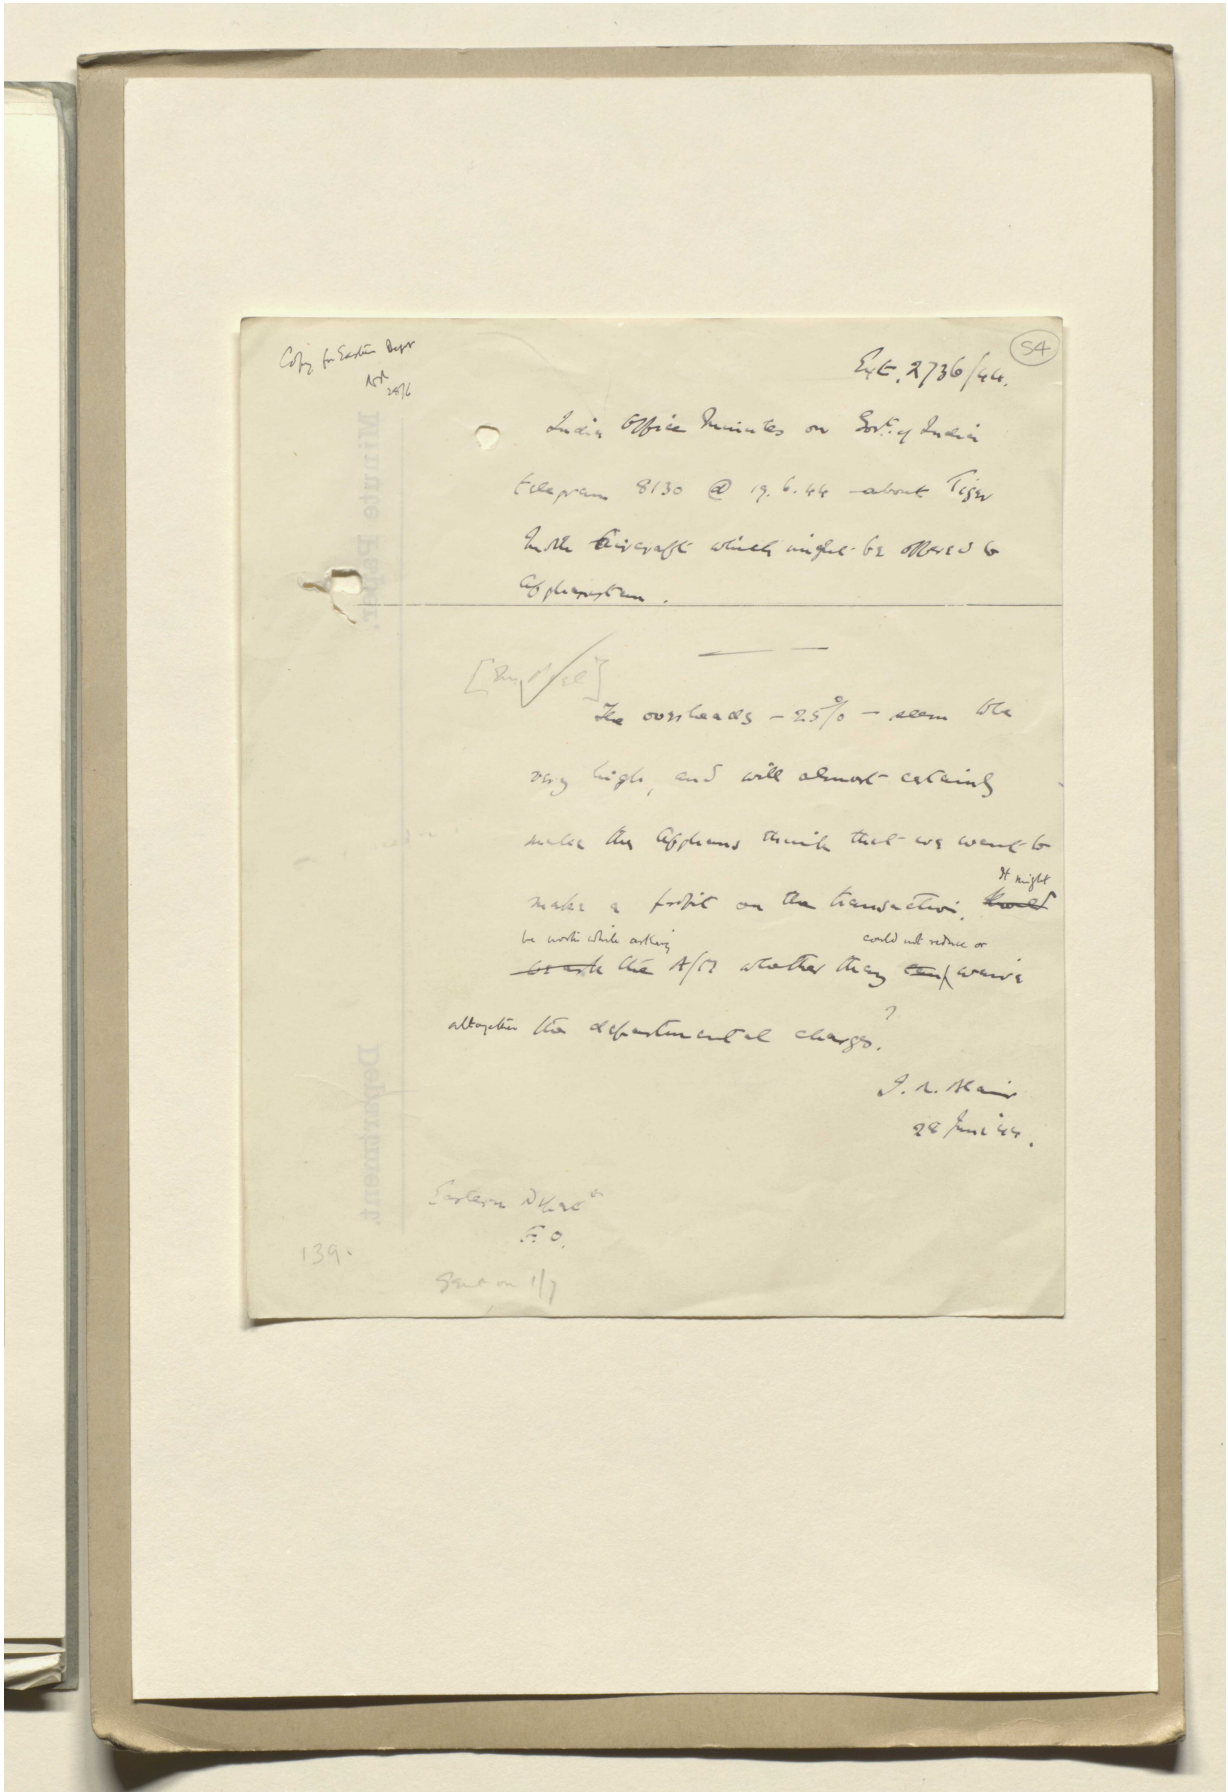 54
Copy for Eastern Dept
28/6
Ext. 2736/44.
India Office Minutes on Govt. of India
telegram 8130 @ 19.6.44 about Tiger
Moth Aircraft which might be offered to
Afghanistan.
The overheads – 25% – seem to be
very high, and will almost certainly
make the Afghans think that we want to
It might
make a profit on the transaction. Should
be worth while asking could not reduce or
we ask the A/M whether they can waive
altogether the departmental charges.?
28 June '44.
Eastern Dept
F.O.
139.
Sent on 1/7
Minute Paper.
Department.